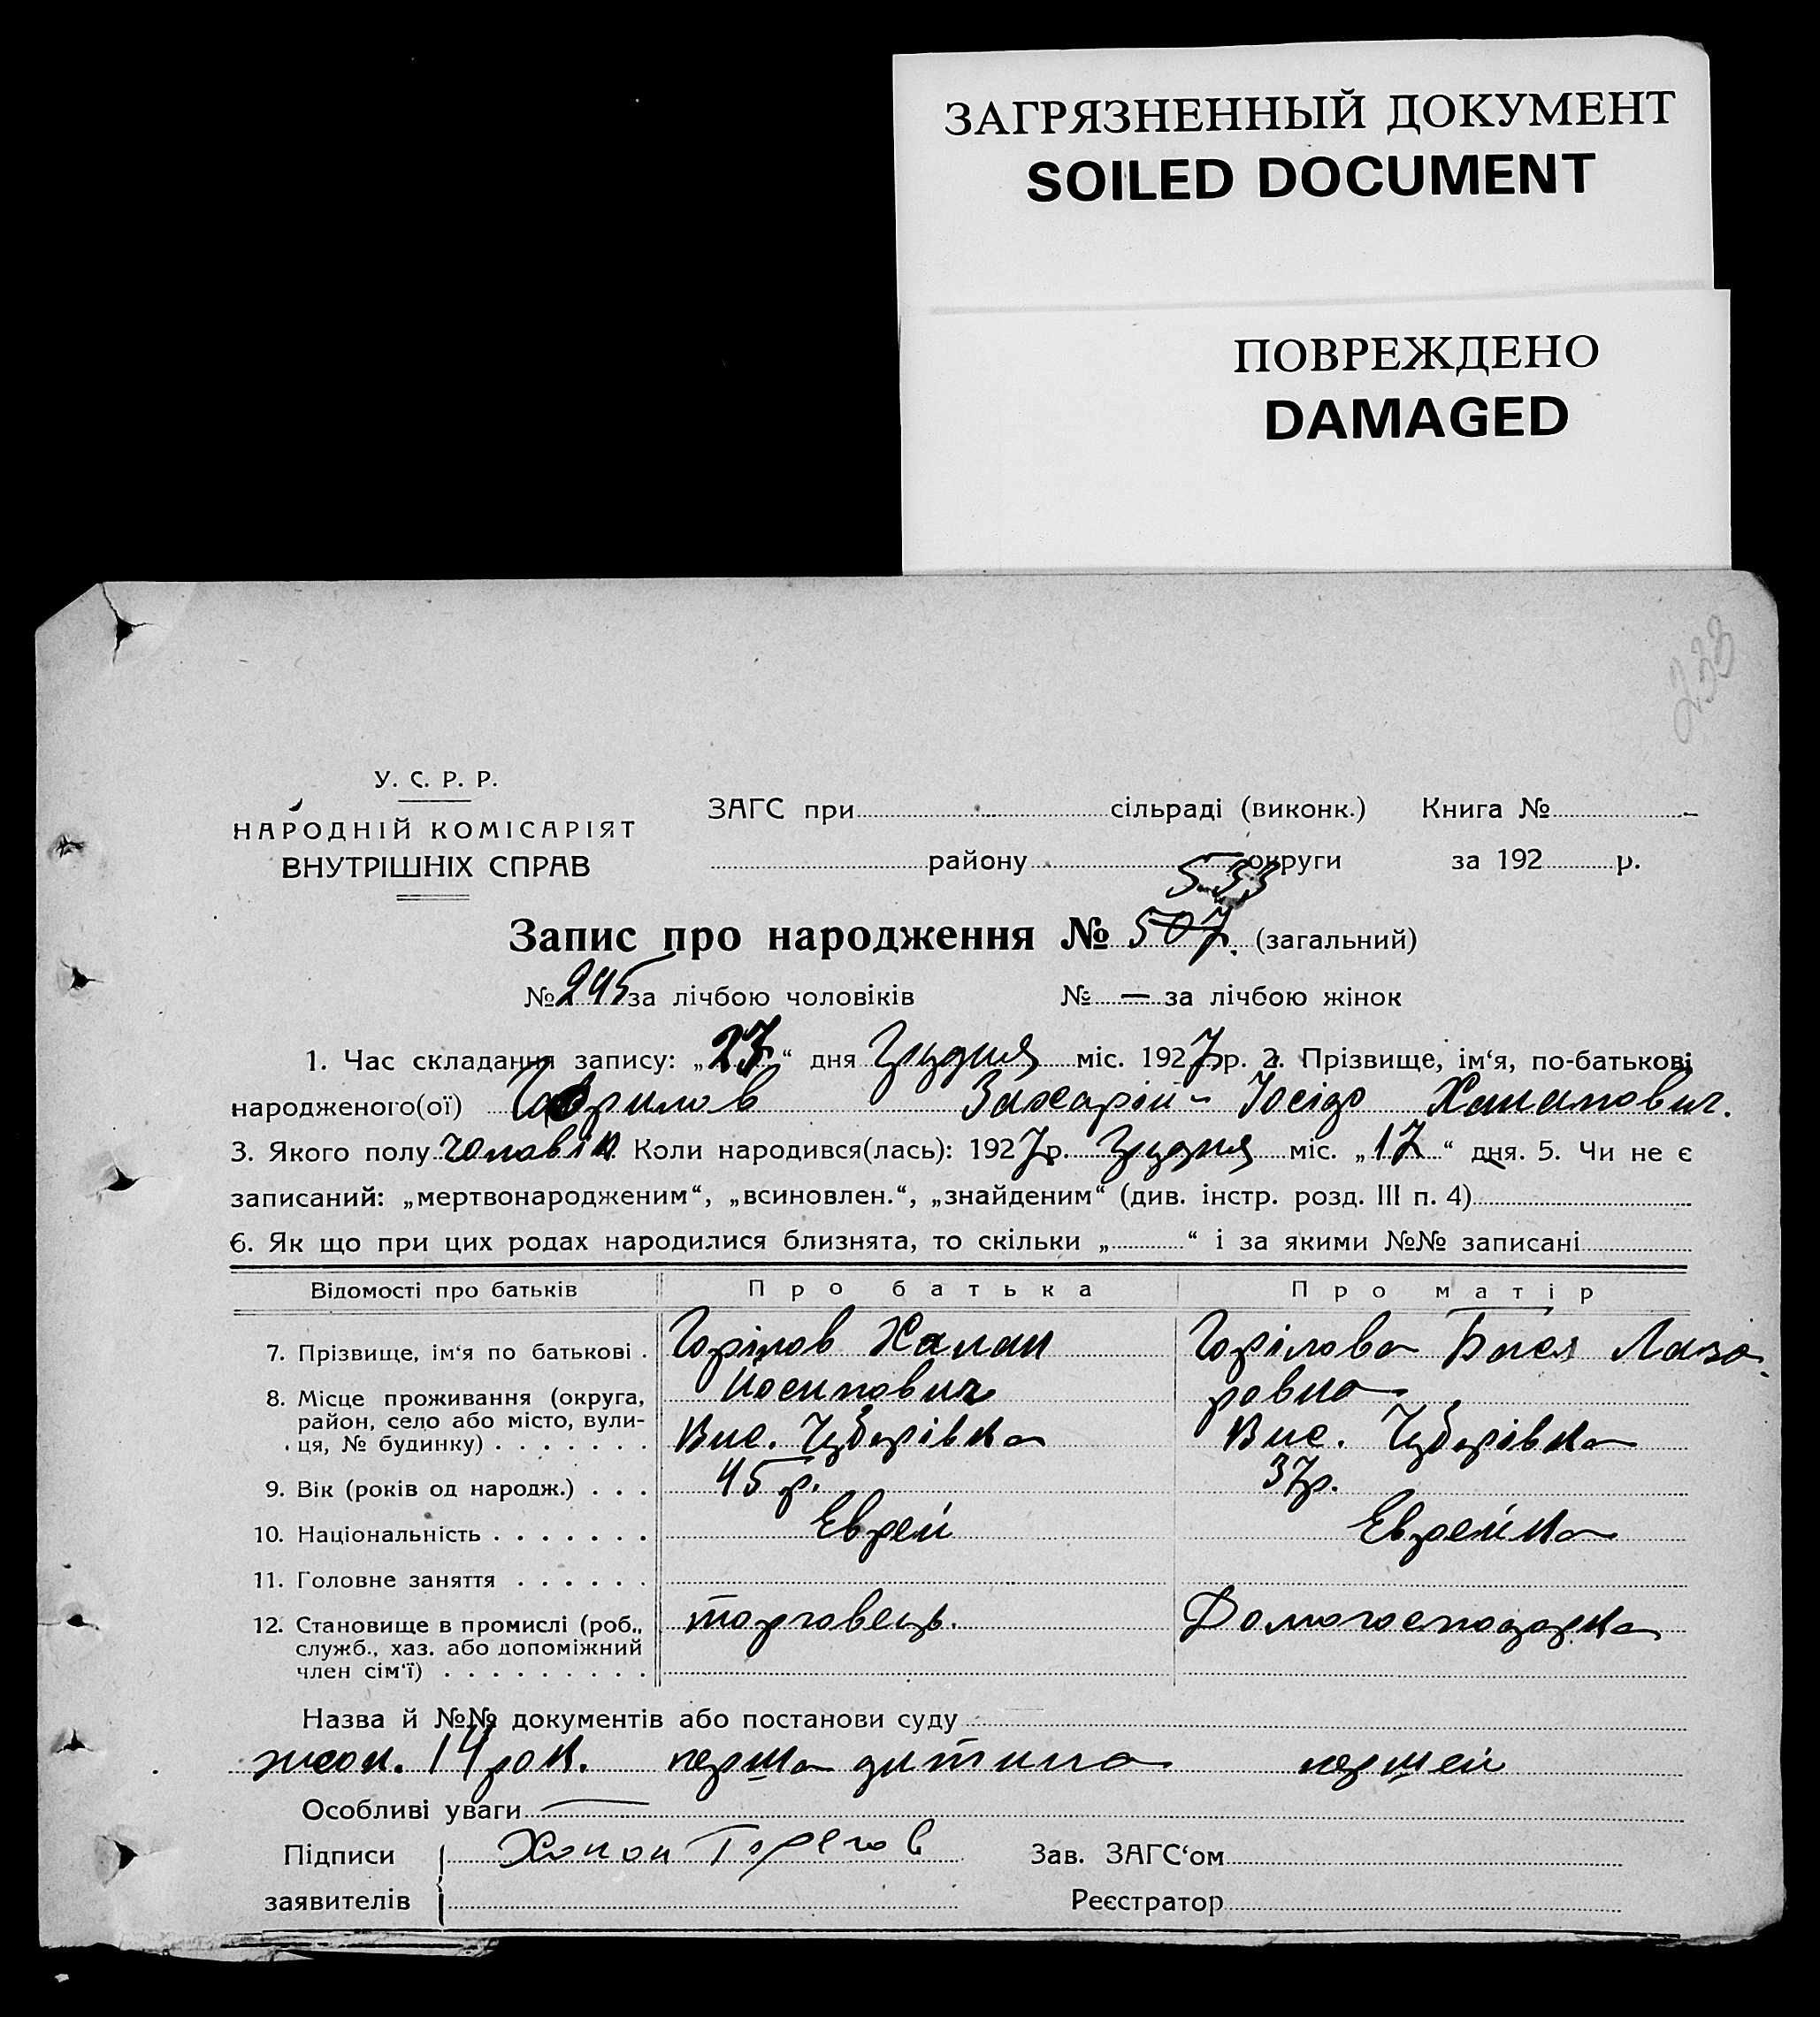 ЗАГРЯЗНЕННЫЙ ДОКУМЕНТ
SOILED DOCUMENT
ПОВРЕЖДЕНО
DAMAGED
233
У. С. Р. Р.
НАРОДНІЙ КОМІСАРІЯТ
ВНУТРІШНІХ СПРАВ
ЗАГС при сільраді (виконк.) Книга №
району округи за 192 р.
533
Запис про народження № 507. (загальний)
№ 245 за лічбою чоловіків № — за лічбою жінок
1. Час складання запису: „27“ дня Грудня міс. 1927р. 2. Прізвище, ім‘я, по-батькові
народженого(ої) Захарій - Йосіф Хананович.
3. Якого полу чоловік Коли народився(лась): 1927р. Грудня міс. „17“ дня. 5. Чи не є
записаний: „мертвонародженим“, „всиновлен.“, „знайденим“ (див. інстр. розд. III п. 4)
6. Як що при цих родах народилися близнята, то скільки „ “ і за якими №№ записані
Відомості про батьків Про батька Про матір
7. Прізвище, ім‘я по батькові . Горілов Ханан Горілова Бася Лаза
8. Місце проживання (округа, Йосипович ровна
район, село або місто, вули-
ця, № будинку) . . . . . . . Вис. Чубарівка Вис. Чубарівка
9. Вік (років од народж.) . . . 45 р. 37р.
10. Національність . . . . . . . Еврей Еврейка
11. Головне заняття . . . . . .
12. Становище в промислі (роб., торговець. Домогосподарка
служб., хаз. або допоміжний
член сім‘ї) . . . . . . . . .
Назва й №№ документів або постанови суду
14 рок. перша дитина першей
Особливі уваги —
Підписи Ханан Зав. ЗАГС‘ом
заявителів Реєстратор